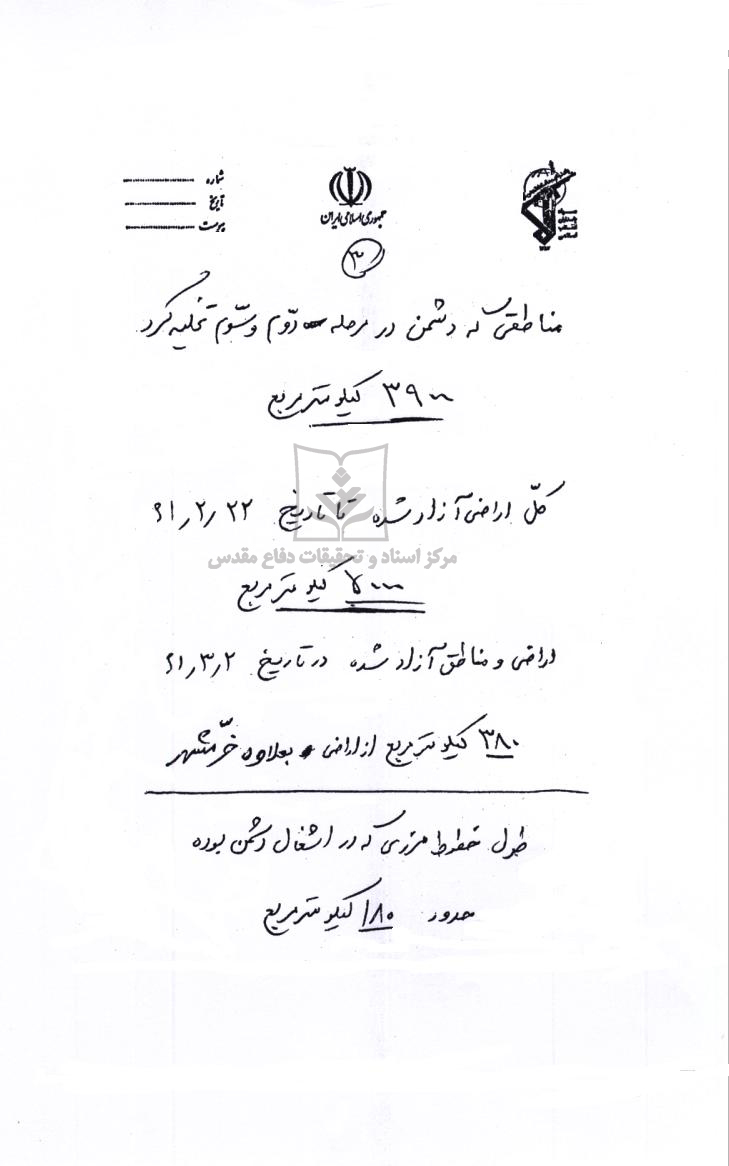 شماره
تاریخ
پیوست
جمهوری اسلامی ایران
۳
مناطقی که دشمن در مرحله دوّم و سّوم تخلیه کرد
۳۹۰۰ کیلومتر مربع
کلّ اراضی آزاد شده تا تاریخ ۶۱٫۲٫۲۲
مرکز اسناد و تحقیقات دفاع مقدس
۵۰۰۰ کیلومتر مربع
اراضی و مناطق آزاد شده در تاریخ ۶۱٫۳٫۲
۳۸۰ کیلومتر مربع از اراضی بعلاوه خرّمشهر
طول خطوط مرزی که در اشغال دشمن بوده
حدود ۱۸۰ کیلومتر مربع